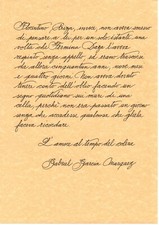 Florentino Ariza, invece, non aveva smesso
di pensare a lei per un solo istante una
volta che Fermina Daza l'aveva
respinto senza appello, ed erano trascorsi
da allora cinquantun anni, nove mesi
e quattro giorni. Non aveva dovuto
tenere conto dell'oblio facendo un
segno quotidiano sui muri di una
cella, perché non era passato un giorno
senza che succedesse qualcosa che gliela
faceva ricordare.
L'amore ai tempi del colera
Gabriel Garcia Marquez